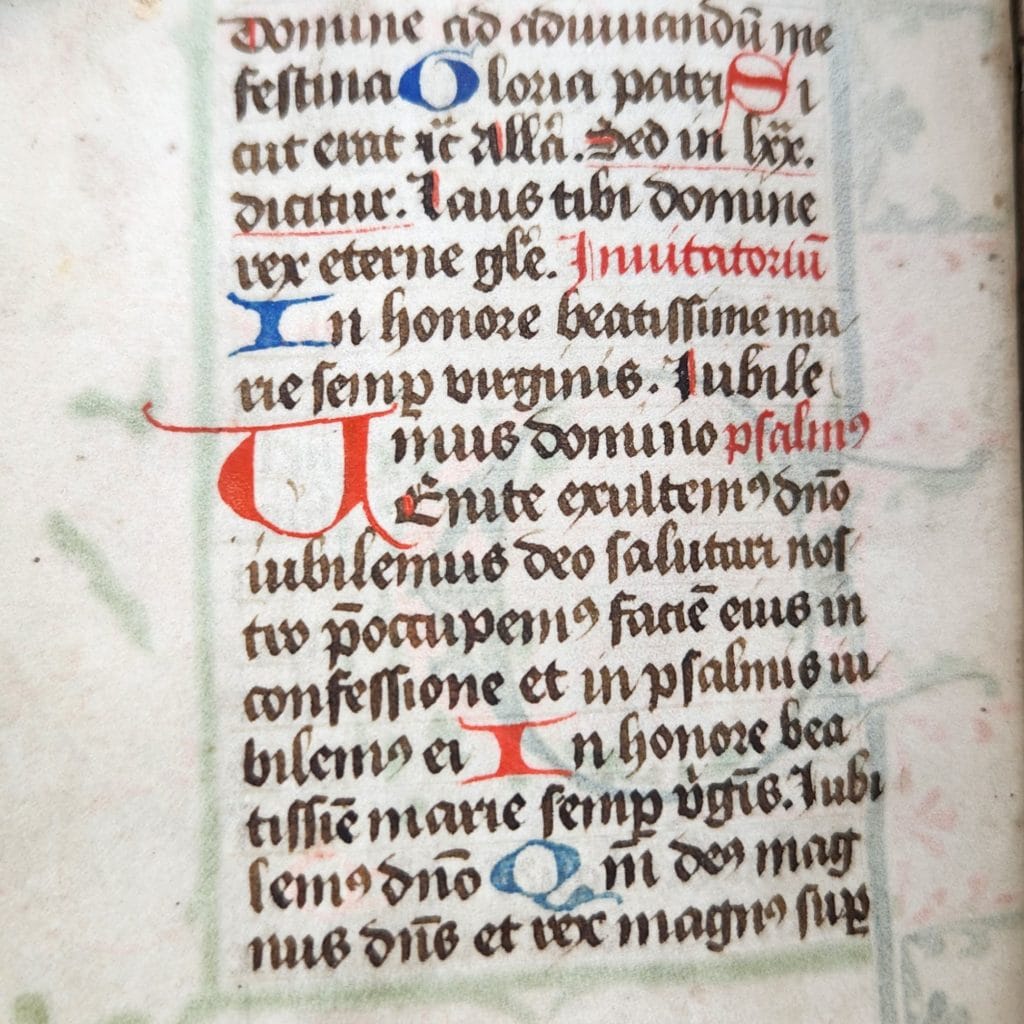 Domine ad adiuuandū me
festina Gloria patri Si
cut erat ⁊c̄ Alla. Sed in lxx.
dicitur. Laus tibi domine
rex eterne gle. Inuitatoriū
In honore beatissime ma
rie semꝑ virginis. Iubile
mus domino psalmꝰ
UEnite exultemꝰ dn̄o
iubilemus deo salutari nos
tro p̄occupemꝰ faciē eius in
confessione et in psalmis iu
bilemꝰ ei In honore bea
tissīe marie semꝑ v̄gīs. Iubi
lemꝰ dn̄o Qm̄ deꝰ mag
nus dn̄s et rex magnꝰ suꝑ